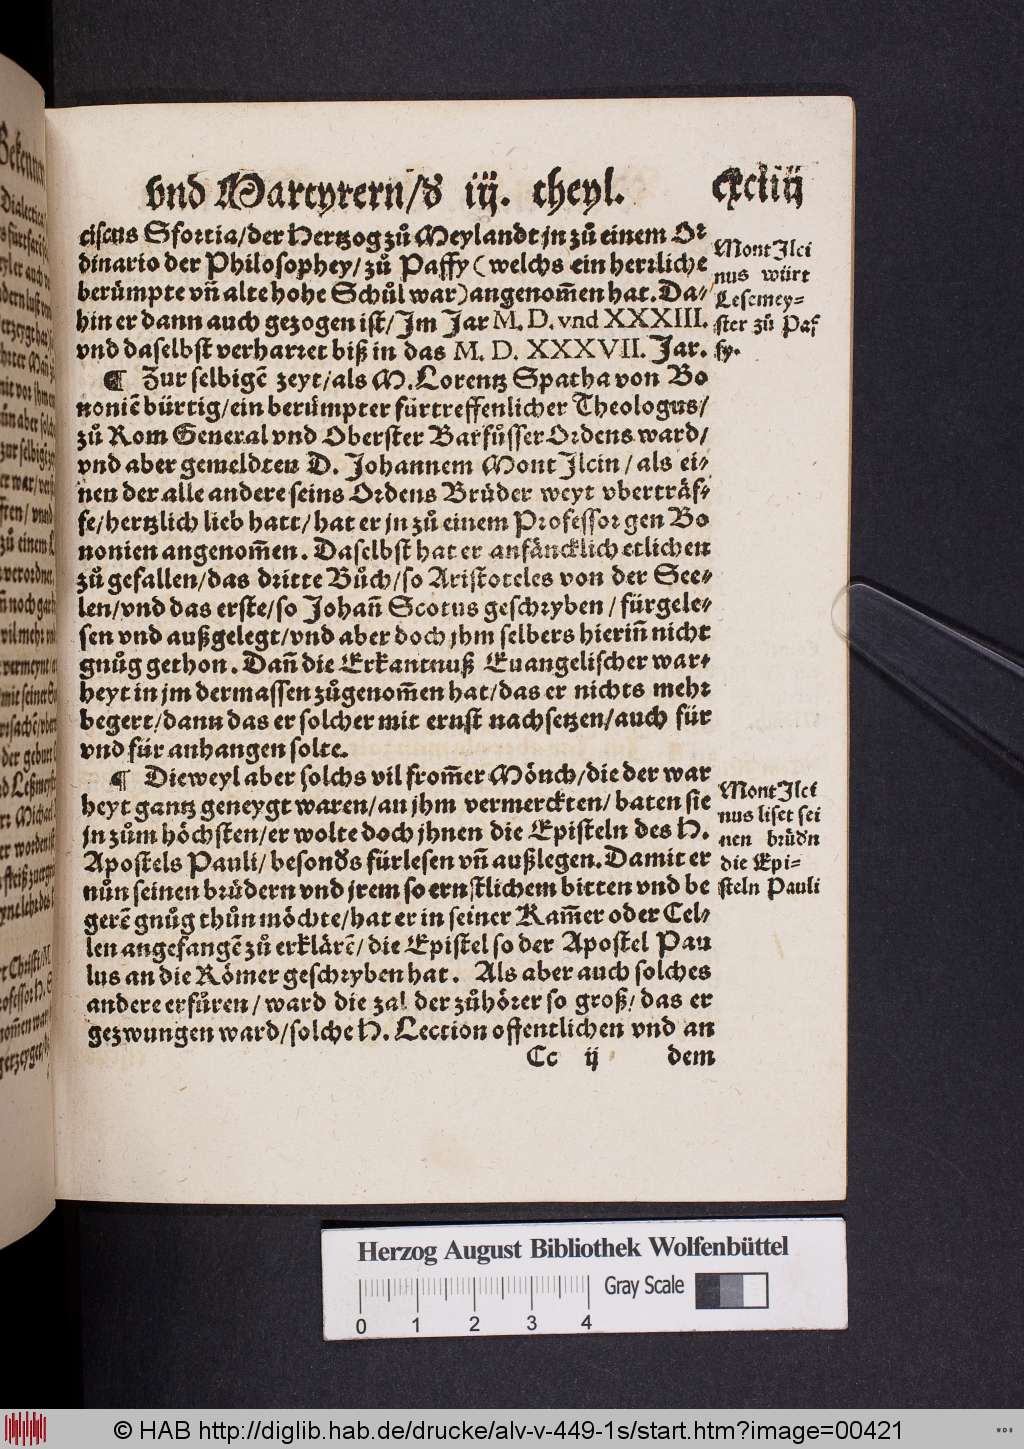 vnd Martyrern/đ iij. theyl. cxciiij
ciscus Sfortia/der Hertzog zů Meylandt jn zů einem Or
dinario der Philosophey/ zů Paffy (welchs ein herzliche
berümpte vñ alte hohe Schůl war) angenom̃en hat. Da⸗
hin er dann auch gezogen ist/ Im Jar M. D. vnd XXXIII.
vnd daselbst verharret biß in das M. D. XXXVII. Jar.
Mont Ilci
nus würt
Lesemey⸗
ster zů Paf
fy.
¶ Zur selbigẽ zeyt/als M. Lorentz Spatha von Bo
noniẽ bürtig/ein berümpter fürtreffenlicher Theologus/
zů Rom General vnd Oberster Barfůsser Ordens ward/
vnd aber gemeldten D. Johannem Mont Ilcin / als ei⸗
nen der alle andere seins Ordens Brůder weyt vberträf⸗
fe/hertzlich lieb hatt/ hat er jn zů einem Professor gen Bo
nonien angenom̃en. Daselbst hat er anfäncklich etlichen
zů gefallen/das dritte Bůch/so Aristoteles von der See⸗
len/vnd das erste/so Johañ Scotus geschryben / fürgele⸗
sen vnd außgelegt/vnd aber doch jhm selbers hieriñ nicht
gnůg gethon. Dañ die Erkantnuß Euangelischer war⸗
heyt in jm dermassen zůgenom̃en hat/das er nichts mehr
begert/dann das er solcher mit ernst nachsetzen/auch für
vnd für anhangen solte.
¶ Dieweyl aber solchs vil from̃er Mönch/die der war
heyt gantz geneygt waren/an jhm vermerckten/ baten sie
jn zům höchsten/er wolte doch jhnen die Episteln des H.
Apostels Pauli/ besonđs fürlesen vñ außlegen. Damit er
nůn seinen brůdern vnd jrem so ernstlichem bitten vnd be
gerẽ gnůg thůn möchte/hat er in seiner Kam̃er oder Cel⸗
len angefangẽ zů erklärẽ/ die Epistel so der Apostel Pau
lus an die Römer geschryben hat. Als aber auch solches
andere erfůren/ ward die zal der zůhörer so groß/ das er
gezwungen ward/solche H. Lection offentlichen vnd an
Mont Ilci
nus liset sei
nen brůđn
die Epi⸗
steln Pauli
Cc ij dem
Herzog August Bibliothek Wolfenbüttel
Gray Scale
0 1 2 3 4
© HAB http://diglib.hab.de/drucke/alv-v-449-1s/start.htm?image=00421